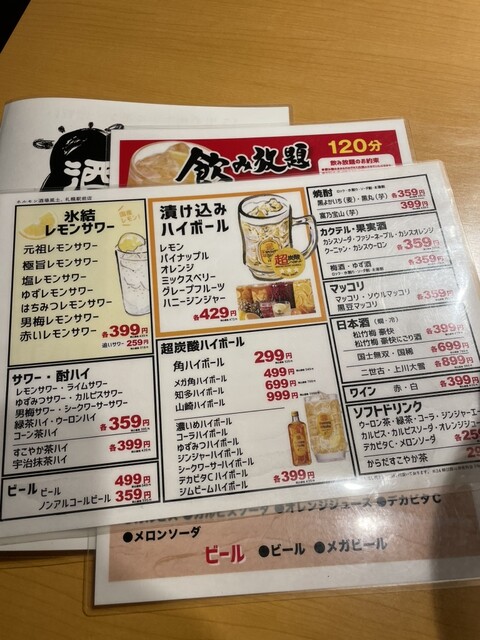 酒
ホルモン酒場風土。札幌駅前店
飲み放題
120分
飲み放題のお約束
氷結
レモンサワー
元祖レモンサワー
極旨レモンサワー
塩レモンサワー
ゆずレモンサワー
はちみつレモンサワー
男梅レモンサワー
赤いレモンサワー
各399円
追いサワー 259円
サワー・酎ハイ
レモンサワー・ライムサワー
ゆずみつサワー・カルピスサワー
男梅サワー・シークワーサーサワー
緑茶ハイ・ウーロンハイ
コーン茶ハイ
各359円
すこやか茶ハイ
宇治抹茶ハイ
各399円
ビール ビール 499円
ノンアルコールビール 359円
漬け込み
ハイボール
レモン
パイナップル
オレンジ
ミックスベリー
グレープフルーツ
ハニージンジャー
各429円
超炭酸
超炭酸ハイボール
角ハイボール 299円
メガ角ハイボール 499円
知多ハイボール 699円
山崎ハイボール 999円
濃いめハイボール
コーラハイボール
ゆずみつハイボール
ジンジャーハイボール
シークワーサーハイボール
デカビタCハイボール
ジムビームハイボール
各399円
焼酎
黒よかいち(麦)・黒丸(芋) 各359円
富乃宝山(芋) 399円
カクテル・果実酒
カシスソーダ・ファジーネーブル・カシスオレンジ
クーニャン・カシスウーロン 各359円
梅酒・ゆず酒 各359円
マッコリ
マッコリ・ソウルマッコリ
黒豆マッコリ 各359円
日本酒 (燗・冷)
松竹梅 豪快 399円
松竹梅 豪快にごり酒
国士無双・国稀 各699円
二世古・上川大雪 各899円
ワイン 赤・白 各399円
ソフトドリンク
ウーロン茶・緑茶・コーラ・ジンジャーエー
カルピス・カルピスソーダ・オレンジジュー
デカビタC・メロンソーダ 各25
からだすこやか茶 29
●メロンソーダ
ビール ●ビール ●メガビール